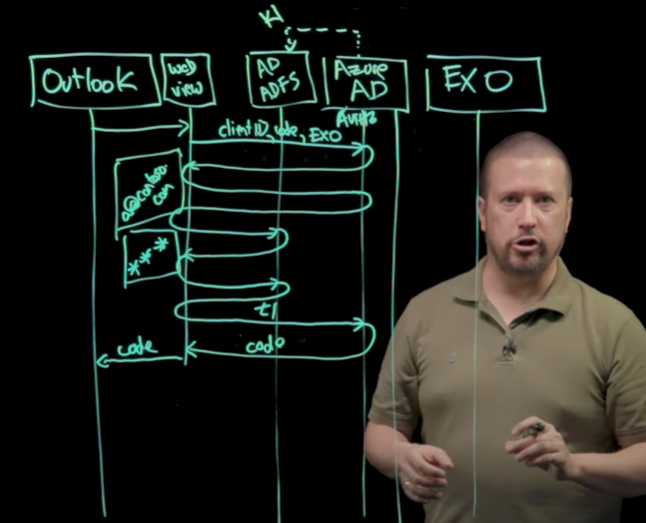 K1
Outlook
web
view
AD
ADFS
Azure
AD
EXO
AuthZ
clientID, code, EXO
a@contoso.
com
***
t1
code
code